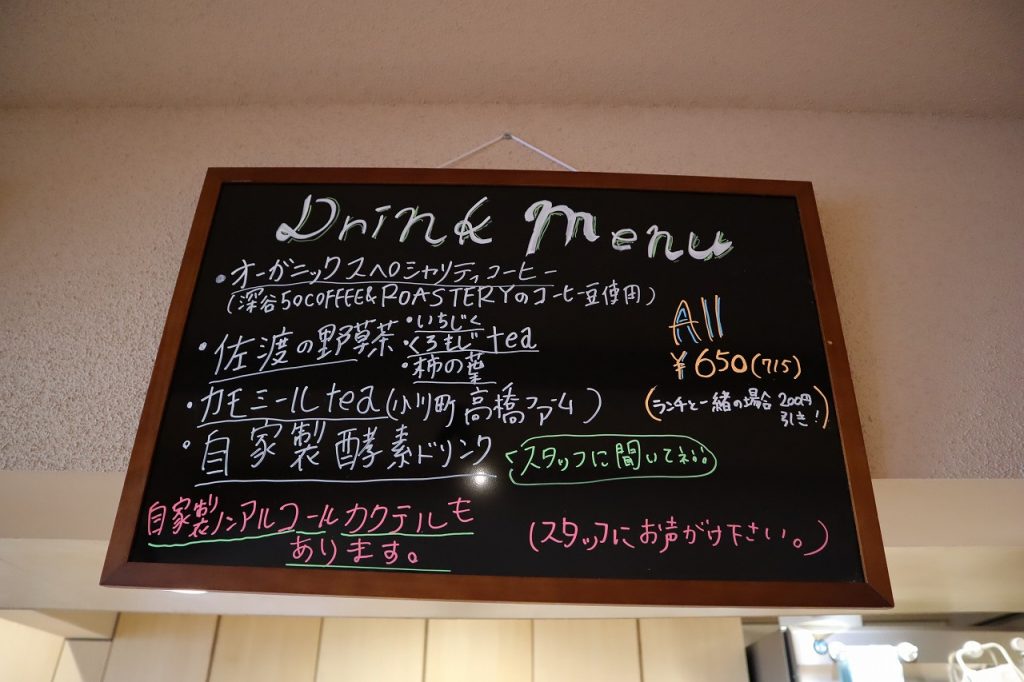 Drink Menu
・オーガニックスペシャリティコーヒー
(深谷50COFFEE&ROASTERYのコーヒー豆使用)
・佐渡の野草茶 ・いちじく
・くろもじ tea
・柿の葉
・カモミールtea(小川町高橋ファーム)
・自家製酵素ドリンク
スタッフに聞いてネ
All
¥650(715)
(ランチと一緒の場合200円
引き!)
自家製ノンアルコールカクテルも
あります。
(スタッフにお声がけ下さい。)